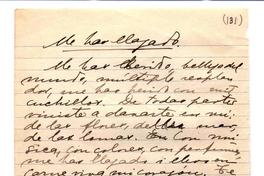 (181)
Me has llagado.
Me has herido, belleza del
mundo, múltiple resplan-
dor, me has herido con mil
cuchillos. De todas partes
viniste a danarte en mí:
de las flores, del mar,
de las lomas. En
sica, con colores, con perfume
me has llagado i llevo en
carne viva mi corazón. Te